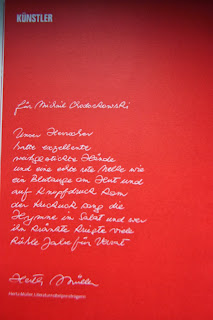 KÜNSTLER
für Michail Chodorkowski
Unser Herrscher
hatte exzellente
maßgestickte Hände
und eine echte rote Nelke wie
ein Blutauge am Hut und
auf Knopfdruck kam
der Kuckuck sang die
Hymne in Salat und wer
ihn kränkte kriegte viele
kühle Jahre für Verrat
Herta Müller
Herta Müller Literaturnobelpreisträgerin